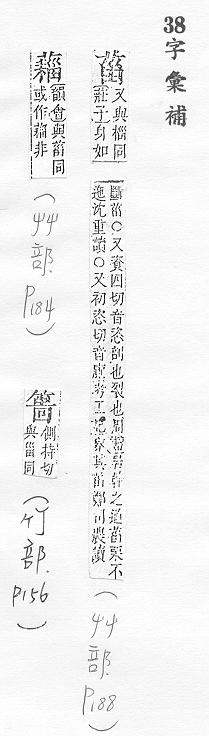 38字彙補
菑又與椔同
莊子身如
斷菑○又資四切音恣剖也裂也周禮居幹之道菑栗不
迤沈重讀○又初恣切音廁考工記察其菑鄭司農讀
(艸部.P188)
韻會與菑同
或作葘非
(艸部.P184)
側持切
與甾同
(竹部.P156)